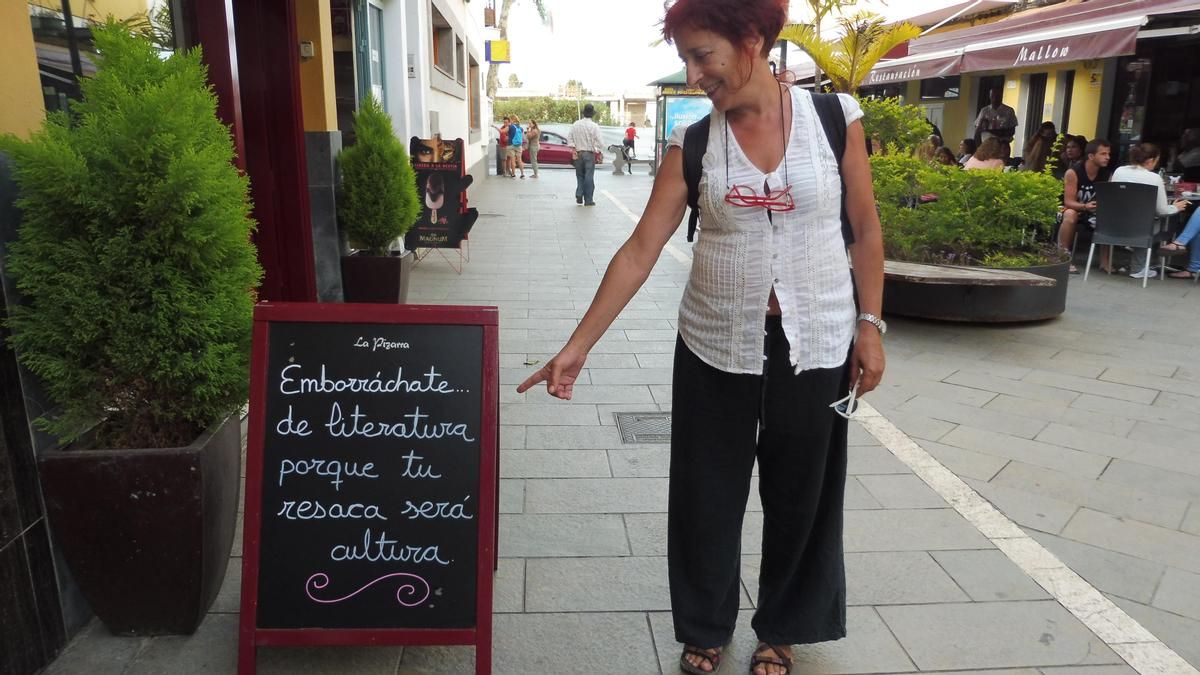 La Pizarra
Emborráchate...
de literatura
porque tu
resaca será
cultura.
MAGNUM
Restauración
Mallow